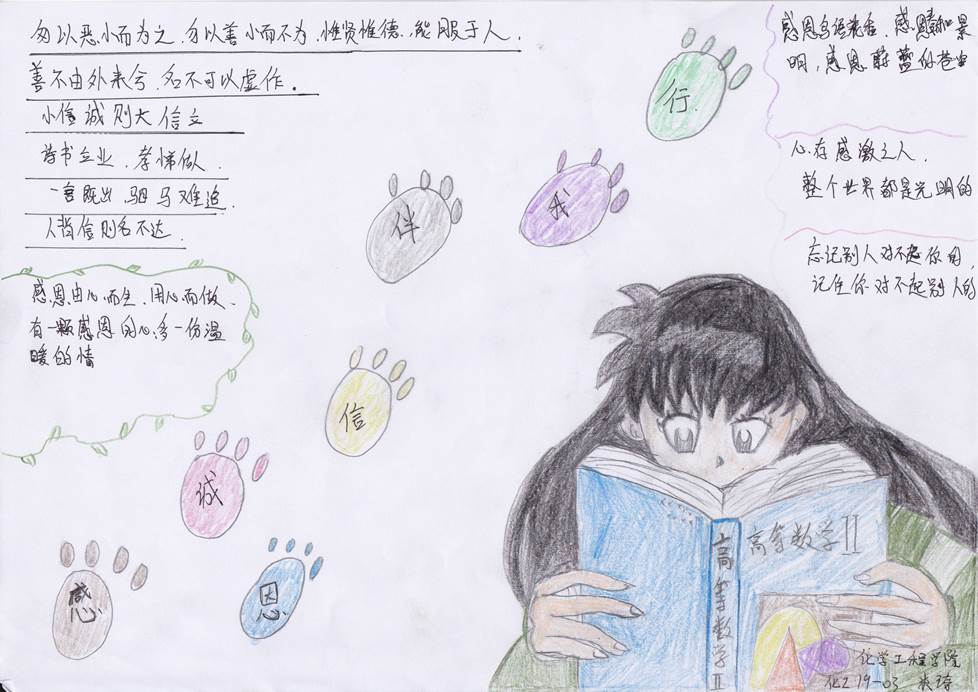 勿以恶小而为之.勿以善小而不为.惟贤惟德,能服于人.
善不由外来兮.名不可以虚作.
小信诚则大信立
诗书立业.孝悌做人.
一言既出.驷马难追.
人背信则名不达.
感恩由心而生.用心而做.
有一颗感恩的心.多一份温
暖的情
感恩鸟语花香.感恩春和景
明,感恩蔚蓝的苍穹
心存感激之人.
整个世界都是光明的
忘记别人对不起你的,
记住你对不起别人的
行
我
伴
信
诚
感
恩
高等数学II
高等数学II
化学工程学院
化工19-03